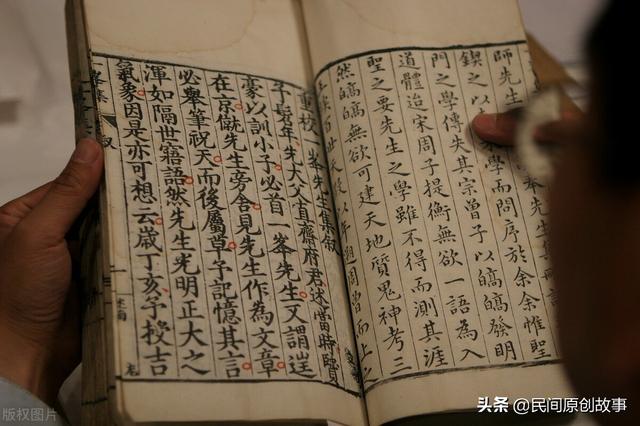 師先生
鍥之以
學而問序於余余惟聖
門之學傳失其宗曾子以皜皜發明
道體迨宋周子提衡無欲一語為入
聖之要先生之學雖不得而測其涯
然皜皜無欲可建天地質鬼神考三
周曾而上之
重校 峯先生集敘
子髫年先大父直齋府君述當時賢
豪以訓小子必首一峯先生又謂
在京僦先生旁舍見先生作為文章
必舉筆祝天而後屬草予記憶其言
渾如隔世寤語然先生光明正大之
氣象因是亦可想云歲丁亥予授吉
峯集 敘
版权图片
头条 @民间原创故事